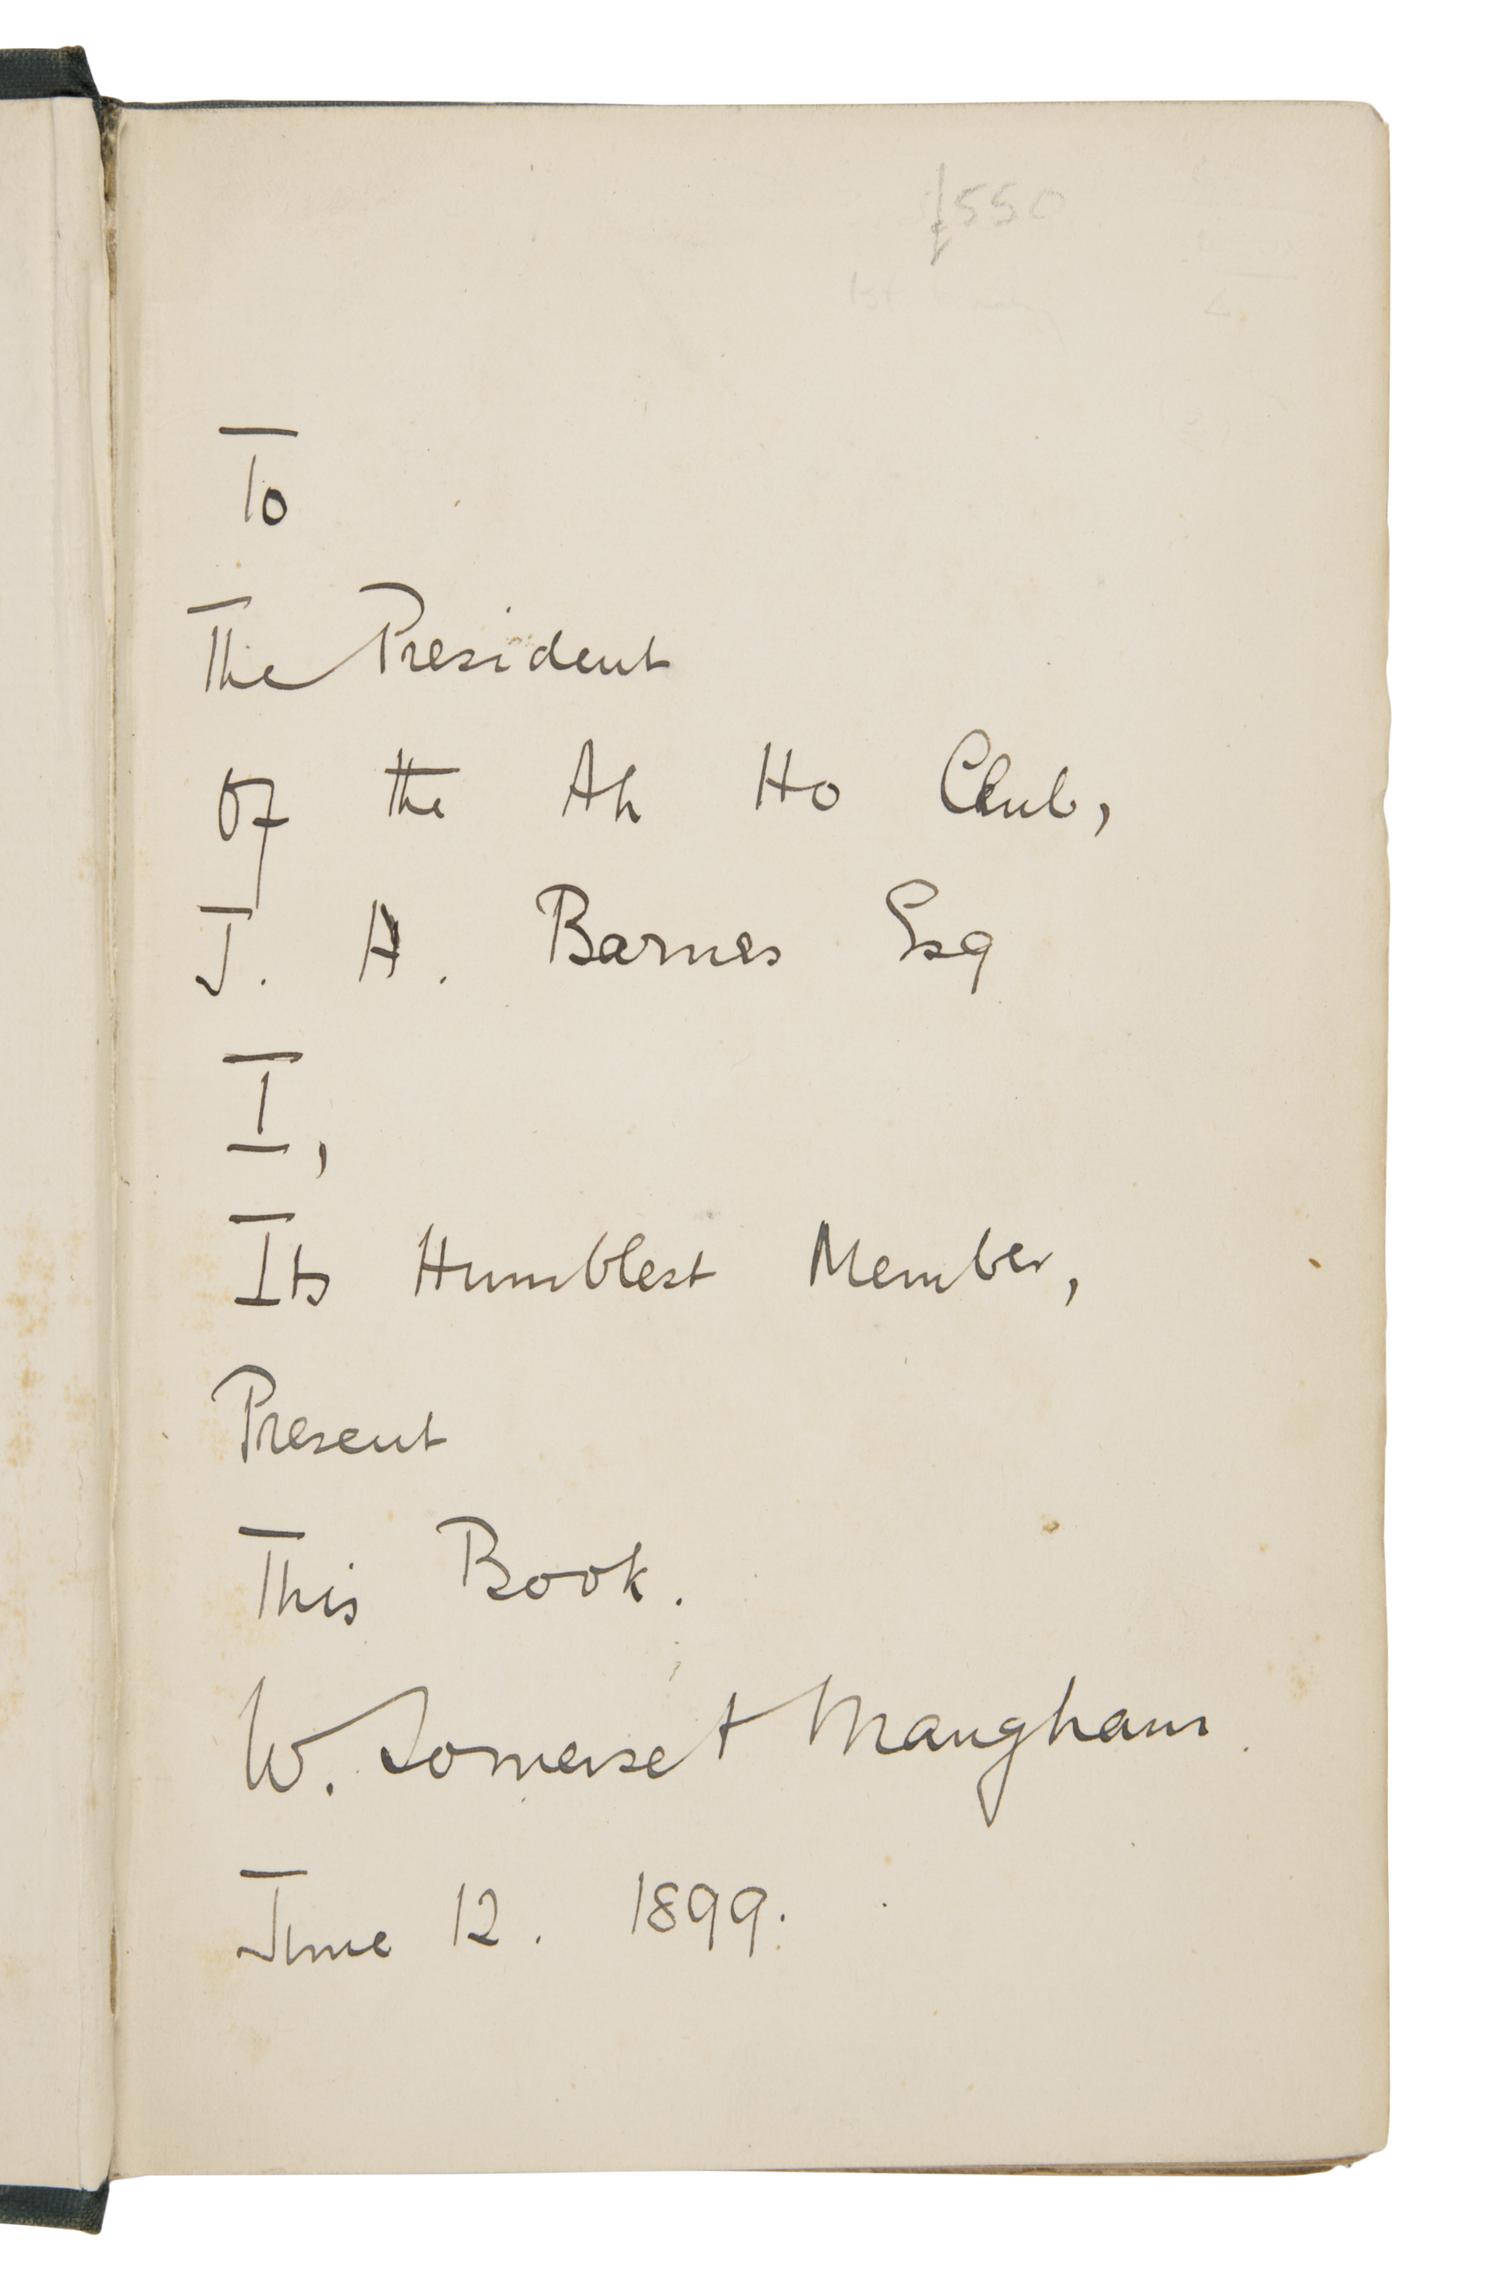 £550
1st
To
The President
of the Ah Ho Club,
J. H. Barnes Esq
I,
Its Humblest Member,
Present
This Book.
W. Somerset Maugham.
June 12. 1899.